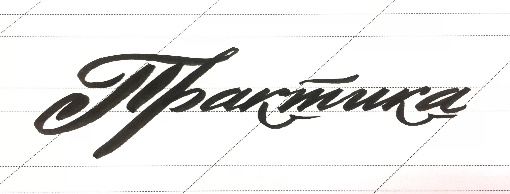 Практика